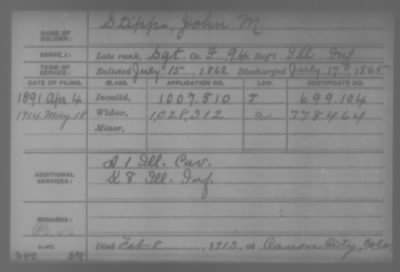 NAME OF SOLDIER: Stipp, John M
SERVICE: Late rank, Sgt Co. F, 94 Reg't Ill Inf
TERM OF SERVICE: Enlisted July 15, 1862 Discharged July 17, 1865
DATE OF FILING. CLASS. APPLICATION NO. LAW. CERTIFICATE NO.
1891 Apr 4 Invalid, 1007.510 699.104
1914 May 18 Widow, 1,028,312 a 778464
Minor,
ADDITIONAL SERVICES: 1 Ill. Cav.
8 Ill. Inf.
REMARKS:
Died Feb 8, 1913, at Canon City, Colo